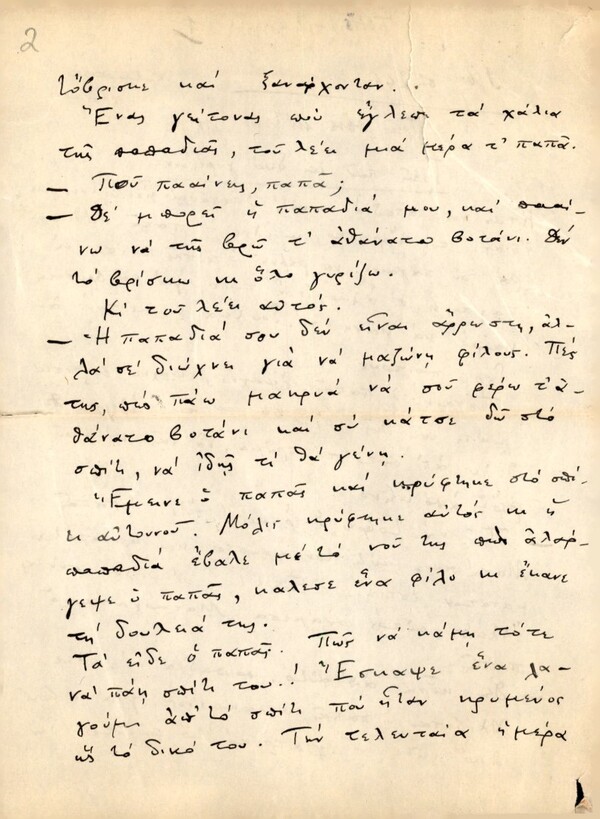 2
τὄβρισκε καί ξαναρχονταν.
Ἕνας γείτονας πού ἔγλεπε τά χάλια
τῆς παπαδιᾶς, τοῦ λέει μιά μέρα τ' παπᾶ.
— Ποῦ πααίνεις, παπᾶ;
— Θέ μπορεῖ ἡ παπαδιά μου, καί πααί-
νω νά τῆς βρῶ τ' ἀθάνατο βοτάνι. Θέν
τό βρίσκω κι ὅλο γυρίζω.
Κί τοῦ λέει αὐτός.
— Ἡ παπαδιά σου δέν εἶναι ἄρρωστη, ἀλ-
λά σέ διώχνει γιά νά μαζώνη φίλους. Πές
της, πώς πάω μακρυά νά σοῦ φέρω τ' ἀ-
θάνατο βοτάνι καί σύ κάτσε δῶ στό
σπίτι, νά ἰδῆς τί θά γένη.
Ἔμεινε ὁ παπᾶς καί κρύφτηκε στό σπί-
τι αὐτουνοῦ. Μόλις κρύφτηκε αὐτός κι ἡ
παπαδιά ἔβαλε μέ τό νοῦ της πώς ἀλάρ-
γεψε ὁ παπᾶς, κάλεσε ἕνα φίλο κι ἔκανε
τή δουλειά της.
Τά εἶδε ὁ παπᾶς. Πῶς νά κάμη τότε
νά πάη σπίτι του..! Ἔσκαψε ἕνα λα-
γούμι ἀπ' τό σπίτι πού ἦταν κρυμένος
ὥς τό δικό του. Τήν τελευταία ἡμέρα